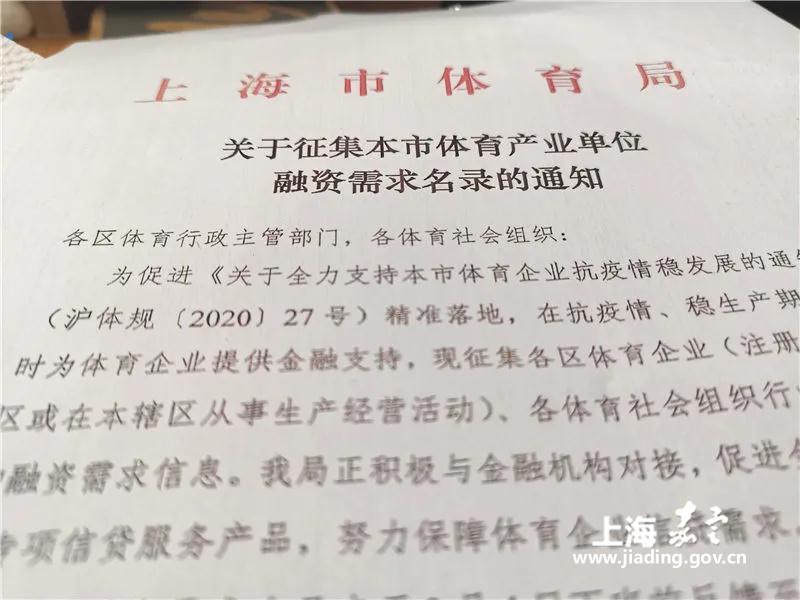 上海市体育局
关于征集本市体育产业单位
融资需求名录的通知
各区体育行政主管部门，各体育社会组织：
为促进《关于全力支持本市体育企业抗疫情稳发展的通知
（沪体规〔2020〕27号）精准落地，在抗疫情、稳生产期
时为体育企业提供金融支持，现征集各区体育企业（注册
区或在本辖区从事生产经营活动）、各体育社会组织行
融资需求信息。我局正积极与金融机构对接，促进
专项信贷服务产品，努力保障体育企 需求
上海嘉定
www.jiading.gov.cn